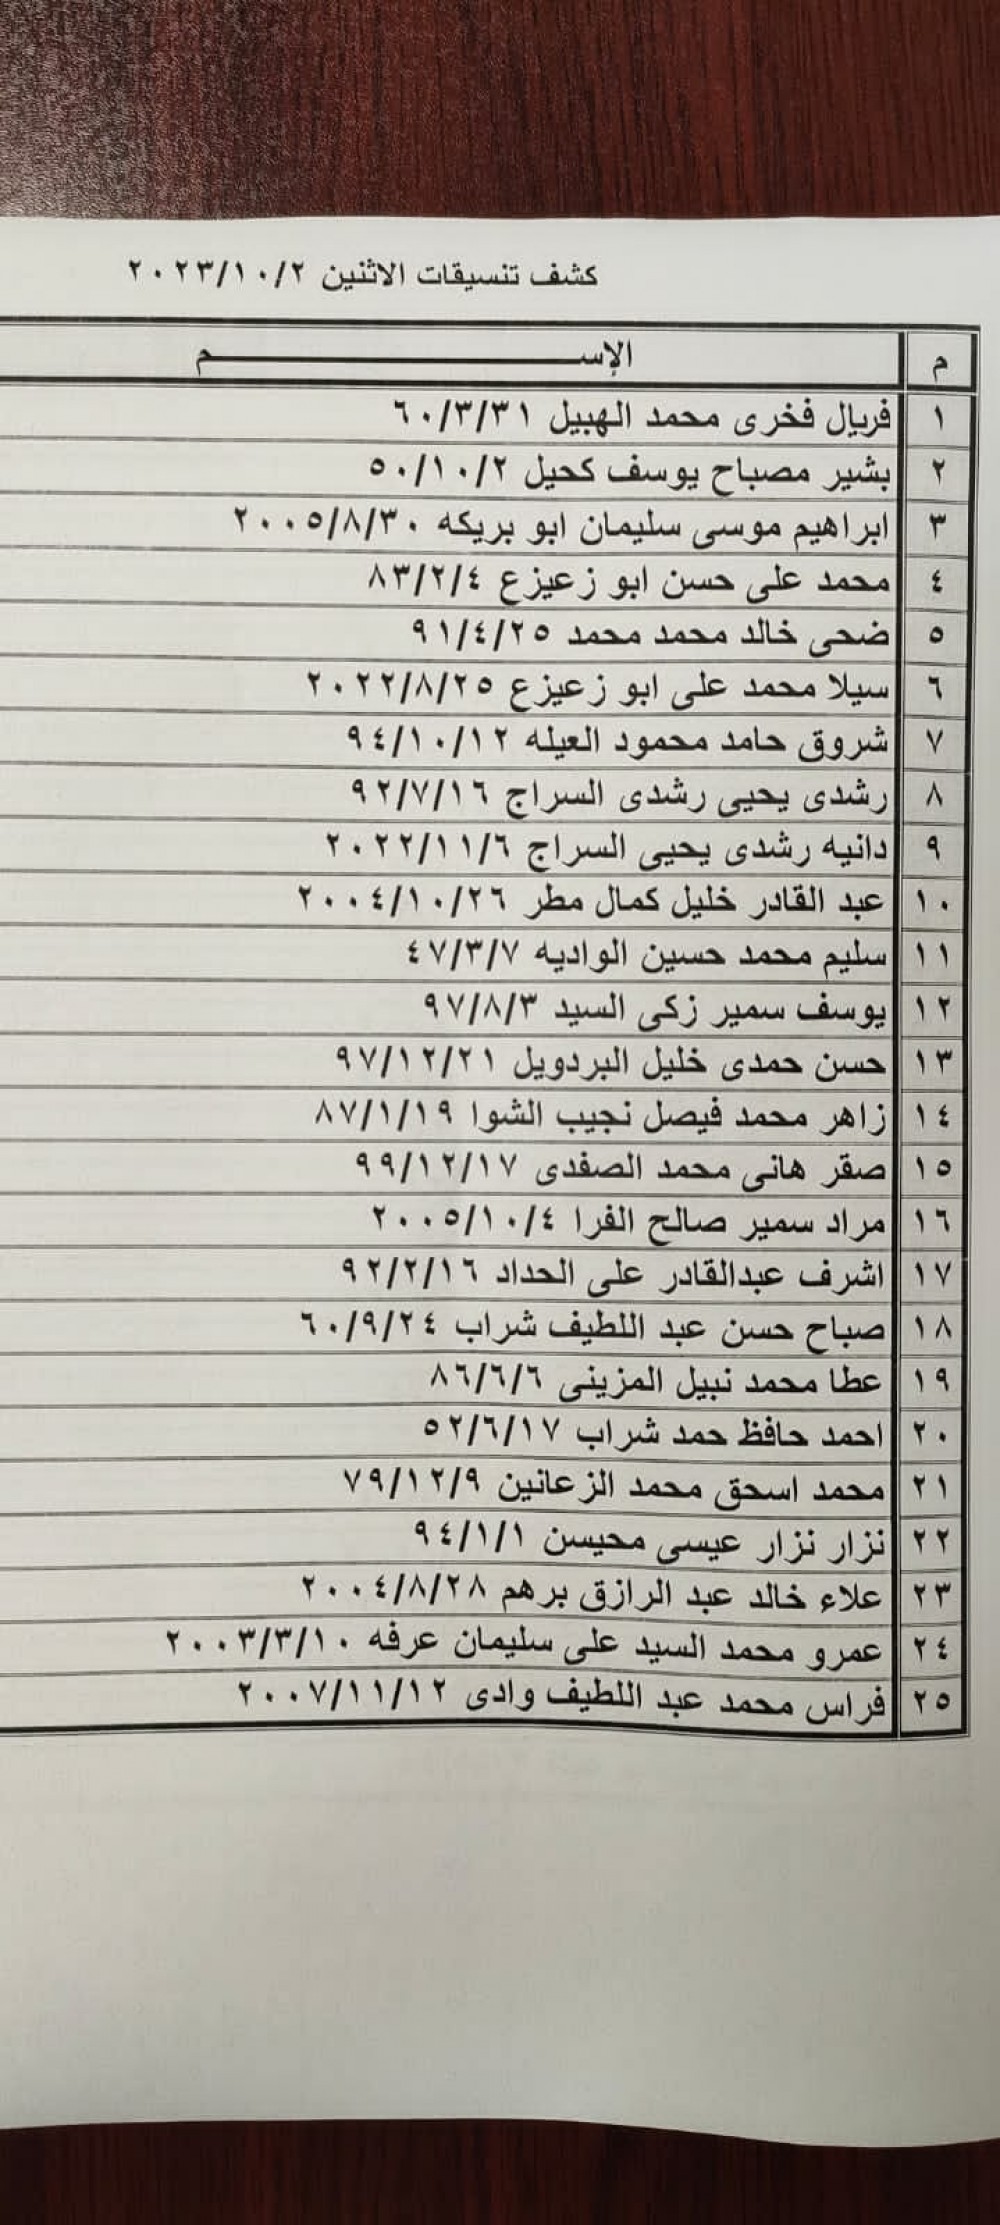 كشف تنسيقات الاثنين ٢٠٢٣/١٠/٢
م الإســـــــــــــــــم
١ فريال فخرى محمد الهبيل ٦٠/٣/٣١
٢ بشير مصباح يوسف كحيل ٥٠/١٠/٢
٣ ابراهيم موسى سليمان ابو بريكه ٢٠٠٥/٨/٣٠
٤ محمد على حسن ابو زعيزع ٨٣/٢/٤
٥ ضحى خالد محمد محمد ٩١/٤/٢٥
٦ سيلا محمد على ابو زعيزع ٢٠٢٢/٨/٢٥
٧ شروق حامد محمود العيله ٩٤/١٠/١٢
٨ رشدى يحيى رشدى السراج ٩٢/٧/١٦
٩ دانيه رشدى يحيى السراج ٢٠٢٢/١١/٦
١٠ عبد القادر خليل كمال مطر ٢٠٠٤/١٠/٢٦
١١ سليم محمد حسين الواديه ٤٧/٣/٧
١٢ يوسف سمير زكى السيد ٩٧/٨/٣
١٣ حسن حمدى خليل البردويل ٩٧/١٢/٢١
١٤ زاهر محمد فيصل نجيب الشوا ٨٧/١/١٩
١٥ صقر هانى محمد الصفدى ٩٩/١٢/١٧
١٦ مراد سمير صالح الفرا ٢٠٠٥/١٠/٤
١٧ اشرف عبدالقادر على الحداد ٩٢/٢/١٦
١٨ صباح حسن عبد اللطيف شراب ٦٠/٩/٢٤
١٩ عطا محمد نبيل المزينى ٨٦/٦/٦
٢٠ احمد حافظ حمد شراب ٥٢/٦/١٧
٢١ محمد اسحق محمد الزعانين ٧٩/١٢/٩
٢٢ نزار نزار عيسى محيسن ٩٤/١/١
٢٣ علاء خالد عبد الرازق برهم ٢٠٠٤/٨/٢٨
٢٤ عمرو محمد السيد على سليمان عرفه ٢٠٠٣/٣/١٠
٢٥ فراس محمد عبد اللطيف وادى ٢٠٠٧/١١/١٢